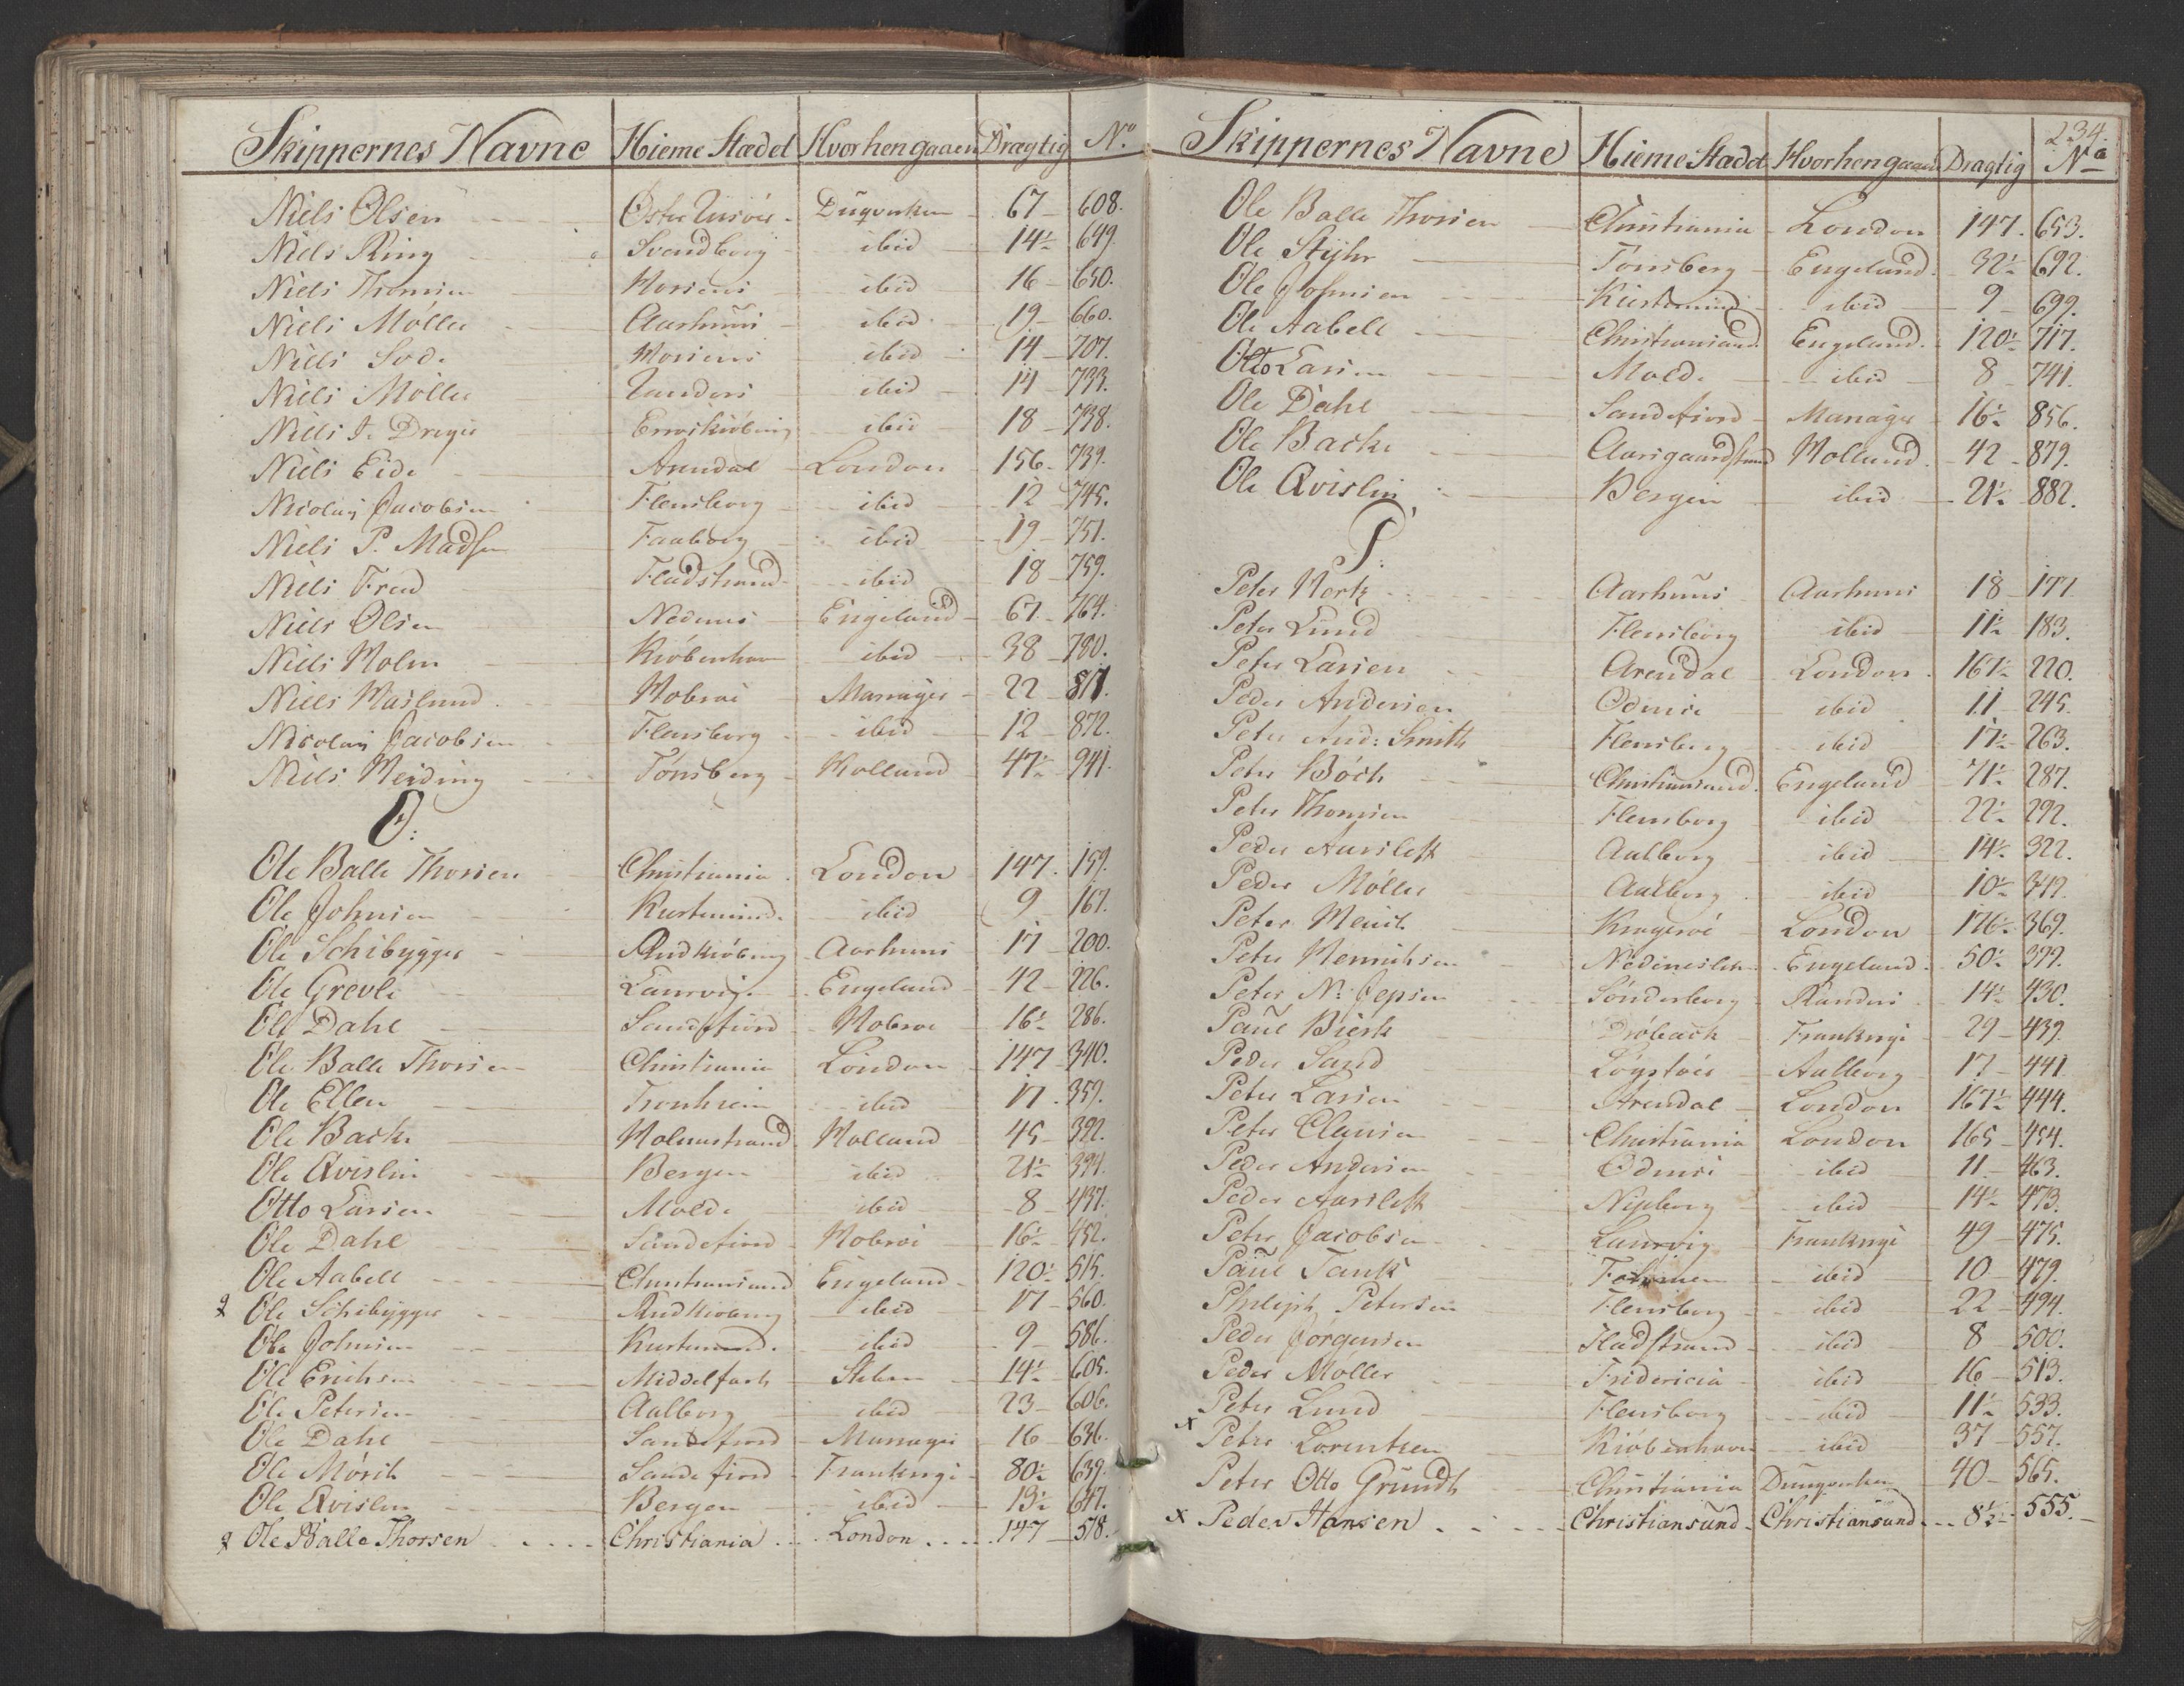 Skippernes Navne Hieme Stædet Hvorhen gaaen Dragtig No.
Niels Olsen Øster Riisöer Duqverken 67 608.
Niels Ring Svendborg ibid 14½ 649.
Niels Thomsen Horsens ibid 16 650.
Niels Möller Aarhuus ibid 19 660.
Niels Horsens ibid 14 707.
Niels Möller Randers ibid 14 733.
Niels J. Dreyer Erröskiöbing ibid 18 738.
Niels Eide Arendal London 156 739.
Nicolay Jacobsen Flensborg ibid 12 745.
Niels P. Madsen Faaborg ibid 19 751.
Niels Frud Fladstrand ibid 18 759.
Niels Olsen Nedenes Engeland 67 764.
Niels Holm Kiöbenhavn ibid 38 780.
Niels Haslund Hobroe Mariager 22 811.
Nicolay Jacobsen Flensborg ibid 12 872.
Niels Meiding Tönsberg Holland 47½ 941.
O:
Ole Balle Thorsen Christiania London 147 159.
Ole Johnsen Kierteminde ibid 9 167.
Ole Schibygger Rudkiöbing Aarhuus 17 200.
Ole Grevle Laurvig Engeland 42 226.
Ole Dahl Sandefiord Hobroe 16½ 286.
Ole Balle Thorsen Christiania London 147 340.
Ole Ellen Tronhiem ibid 17 359.
Ole Backe Holmestrand Holland 45 392.
Ole Qvislin Bergen ibid 21½ 394.
Otto Larsen Molde ibid 8 437.
Ole Dahl Sandefiord Hobroe 16½ 452.
Ole Aabell Christiansand Engeland 120½ 515.
Ole Schibygger Rudkiöbing ibid 17 560.
Ole Johnsen Kierteminde ibid 9 586.
Ole Erichsen Middelfart 14½ 605.
Ole Petersen Aalborg ibid 23 606.
Ole Dahl Sandefiord Mariager 16 636.
Ole Mörch Sandefiord Frankrige 80½ 639.
Ole Qvislin Bergen ibid 13½ 647.
Ole Balle Thorsen Christiania London 147 578.
234.
Skippernes Navne Hieme Stædet Hvorhen gaaen Dragtig No
Ole Balle Thorsen Christiania London 147 653.
Ole Stÿhr Tönsberg Engeland 32½ 692.
Ole Johnsen Kierteminde ibid 9 699.
Ole Aabell Christiansand Engeland 120½ 717.
Otto Larsen Molde ibid 8 741.
Ole Dahl Sandefiord Mariager 16½ 856.
Ole Backe Aarsgaardstrand Holland 42 879.
Ole Qvislin Bergen ibid 21½ 882.
P:
Peter Hertz Aarhuus Aarhuus 18 177
Peter Lund Flensborg ibid 11½ 183.
Peter Larsen Arendal London 167½ 220.
Peder Andersen Odense ibid 11 245.
Peter And: Smith Flensborg ibid 17½ 263.
Peter Böch Christiansand Engeland 71½ 287.
Peter Thomsen Flensborg ibid 22½ 292.
Peder Aarsleff Aalborg ibid 14½ 322.
Peder Möller Aalborg ibid 10½ 349.
Peter Meinich Krageröe London 176½ 369.
Peter Henrichsen Engeland 50½ 399.
Peter N: Jepsen Sönderborg Randers 14½ 430.
Paul Bierk Dröback Frankrige 29 439.
Peder Sand Lögstöer Aalborg 17 441
Peter Larsen Arendal London 167½ 444.
Peter Clausen Christiania London 165 454.
Peder Andersen Odense ibid 11 463.
Peder Aarsleff Nyeborg ibid 14½ 473.
Peter Jacobsen Laurvig Frankrige 49 475.
Paul Tank ibid 10 479.
Philiph Petersen Flensborg ibid 22 494.
Peder Jörgensen Fladstrand ibid 8 500.
Peder Moller Fridericia ibid 16 513.
Peter Lund Flensborg ibid 11½ 533.
x Peter Lorentzen Kiöbenhavn ibid 37 557.
Peter Otto Grundt Christiania Dunqverken 40 565.
x Peder Hansen Christiansund Christiansund 8½ 555.